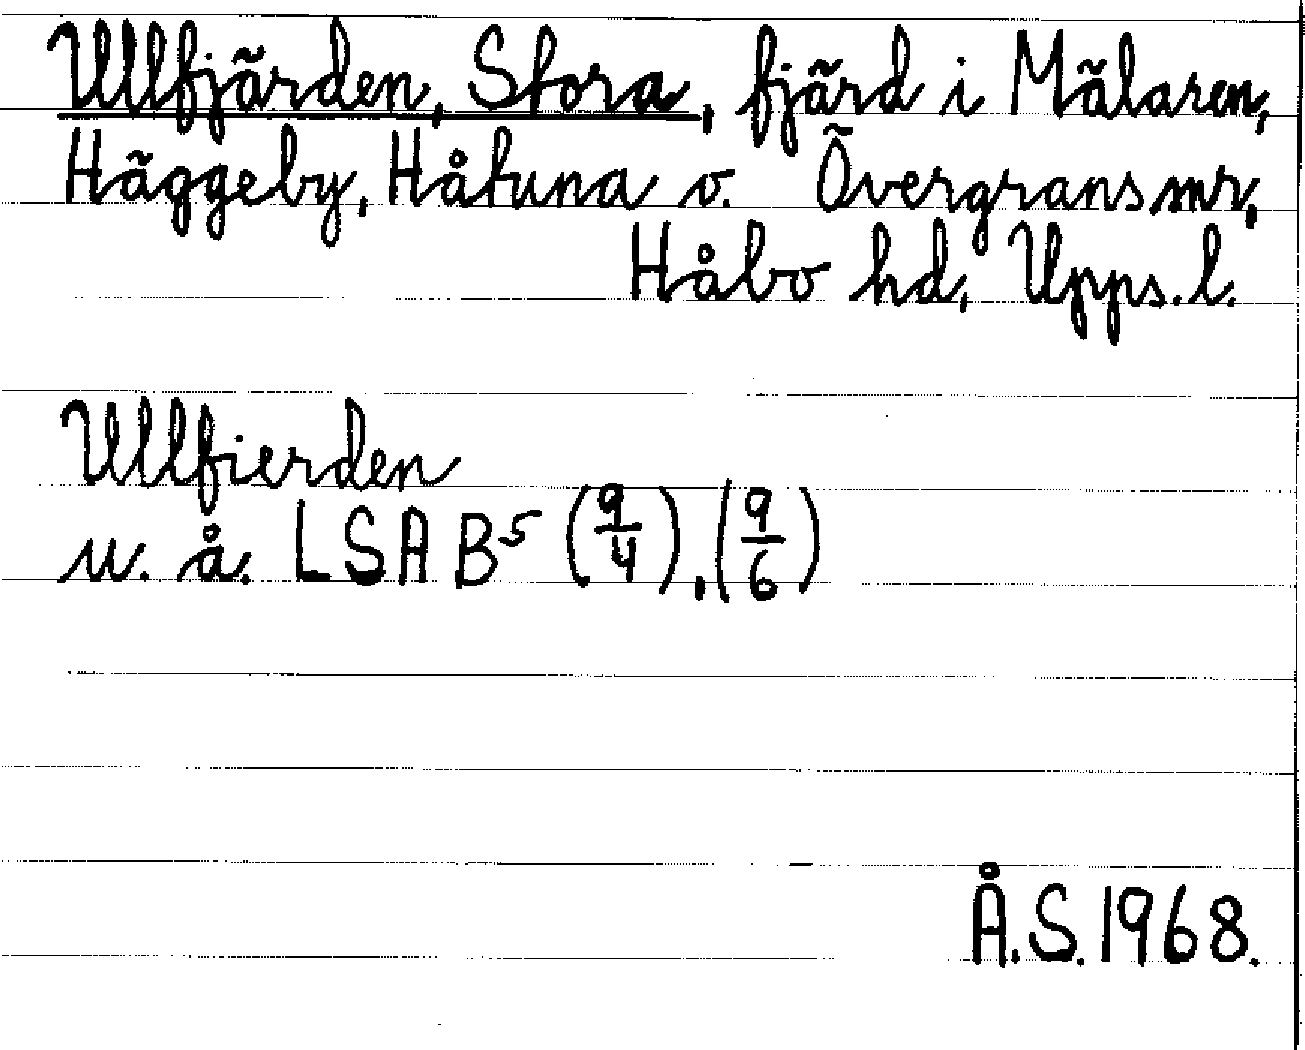 Ullfjärden, Stora, fjärd i Mälaren,
Häggeby, Håtuna o. Övergrans snr,
Håbo hd, Upps. l.
Ullfierden
u. å. LSA B5 (9/4), (9/6)
Å.S. 1968.